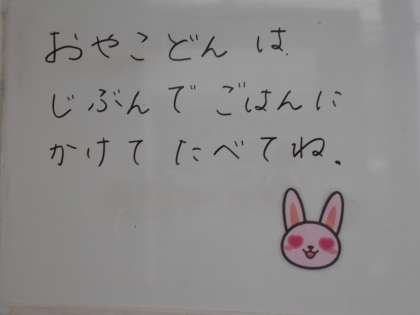 おやこどん は
じぶんで ごはんに
かけて たべてね.